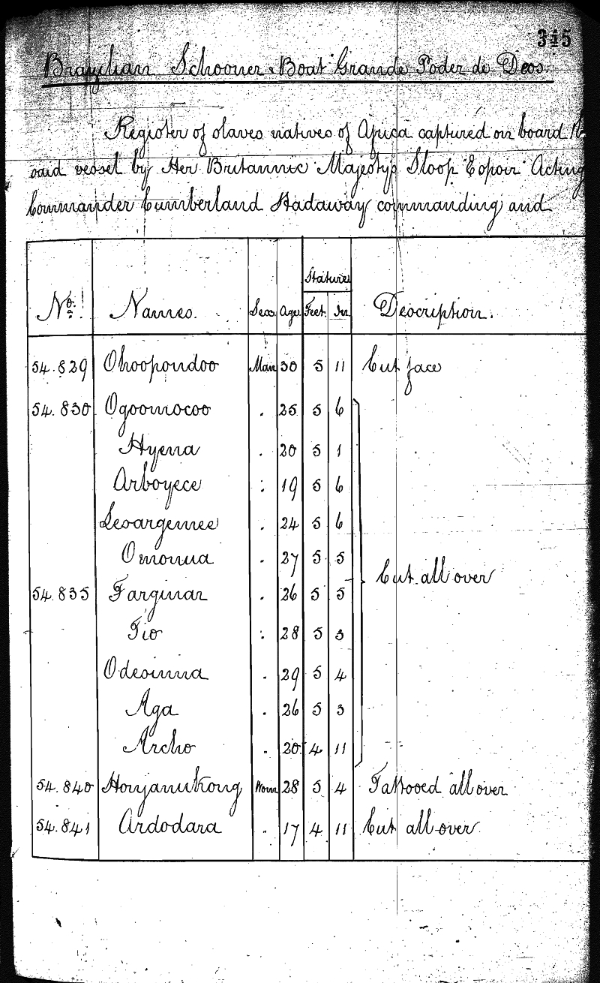 345
Brazilian Schooner Boat "Grande Poder de Deos"
Register of slaves natives of Africa captured on board the
said vessel by Her Britannic Majesty's Sloop "Espoir" Acting
Commander Cumberland Hadaway commanding and
Stature
No. Names. Sex Age Feet In Description.
54.829 Ohoopondoo Man 30 5 11 Cut face
54.830 Ogoomocoo . 25 5 6
Hyena . 20 5 1
Arboyece : 19 5 6
Lesargemee . 24 5 6
Omonua . 27 5 5
Cut all over
54.835 Farginar . 26 5 5
Tio : 28 5 3
Odesinna . 29 5 4
Aga . 26 5 3
Archo . 20 4 11
54.840 Honjanukong Wom 28 5 4 Tattooed all over
54.841 Ardodara . 17 4 11 Cut all over